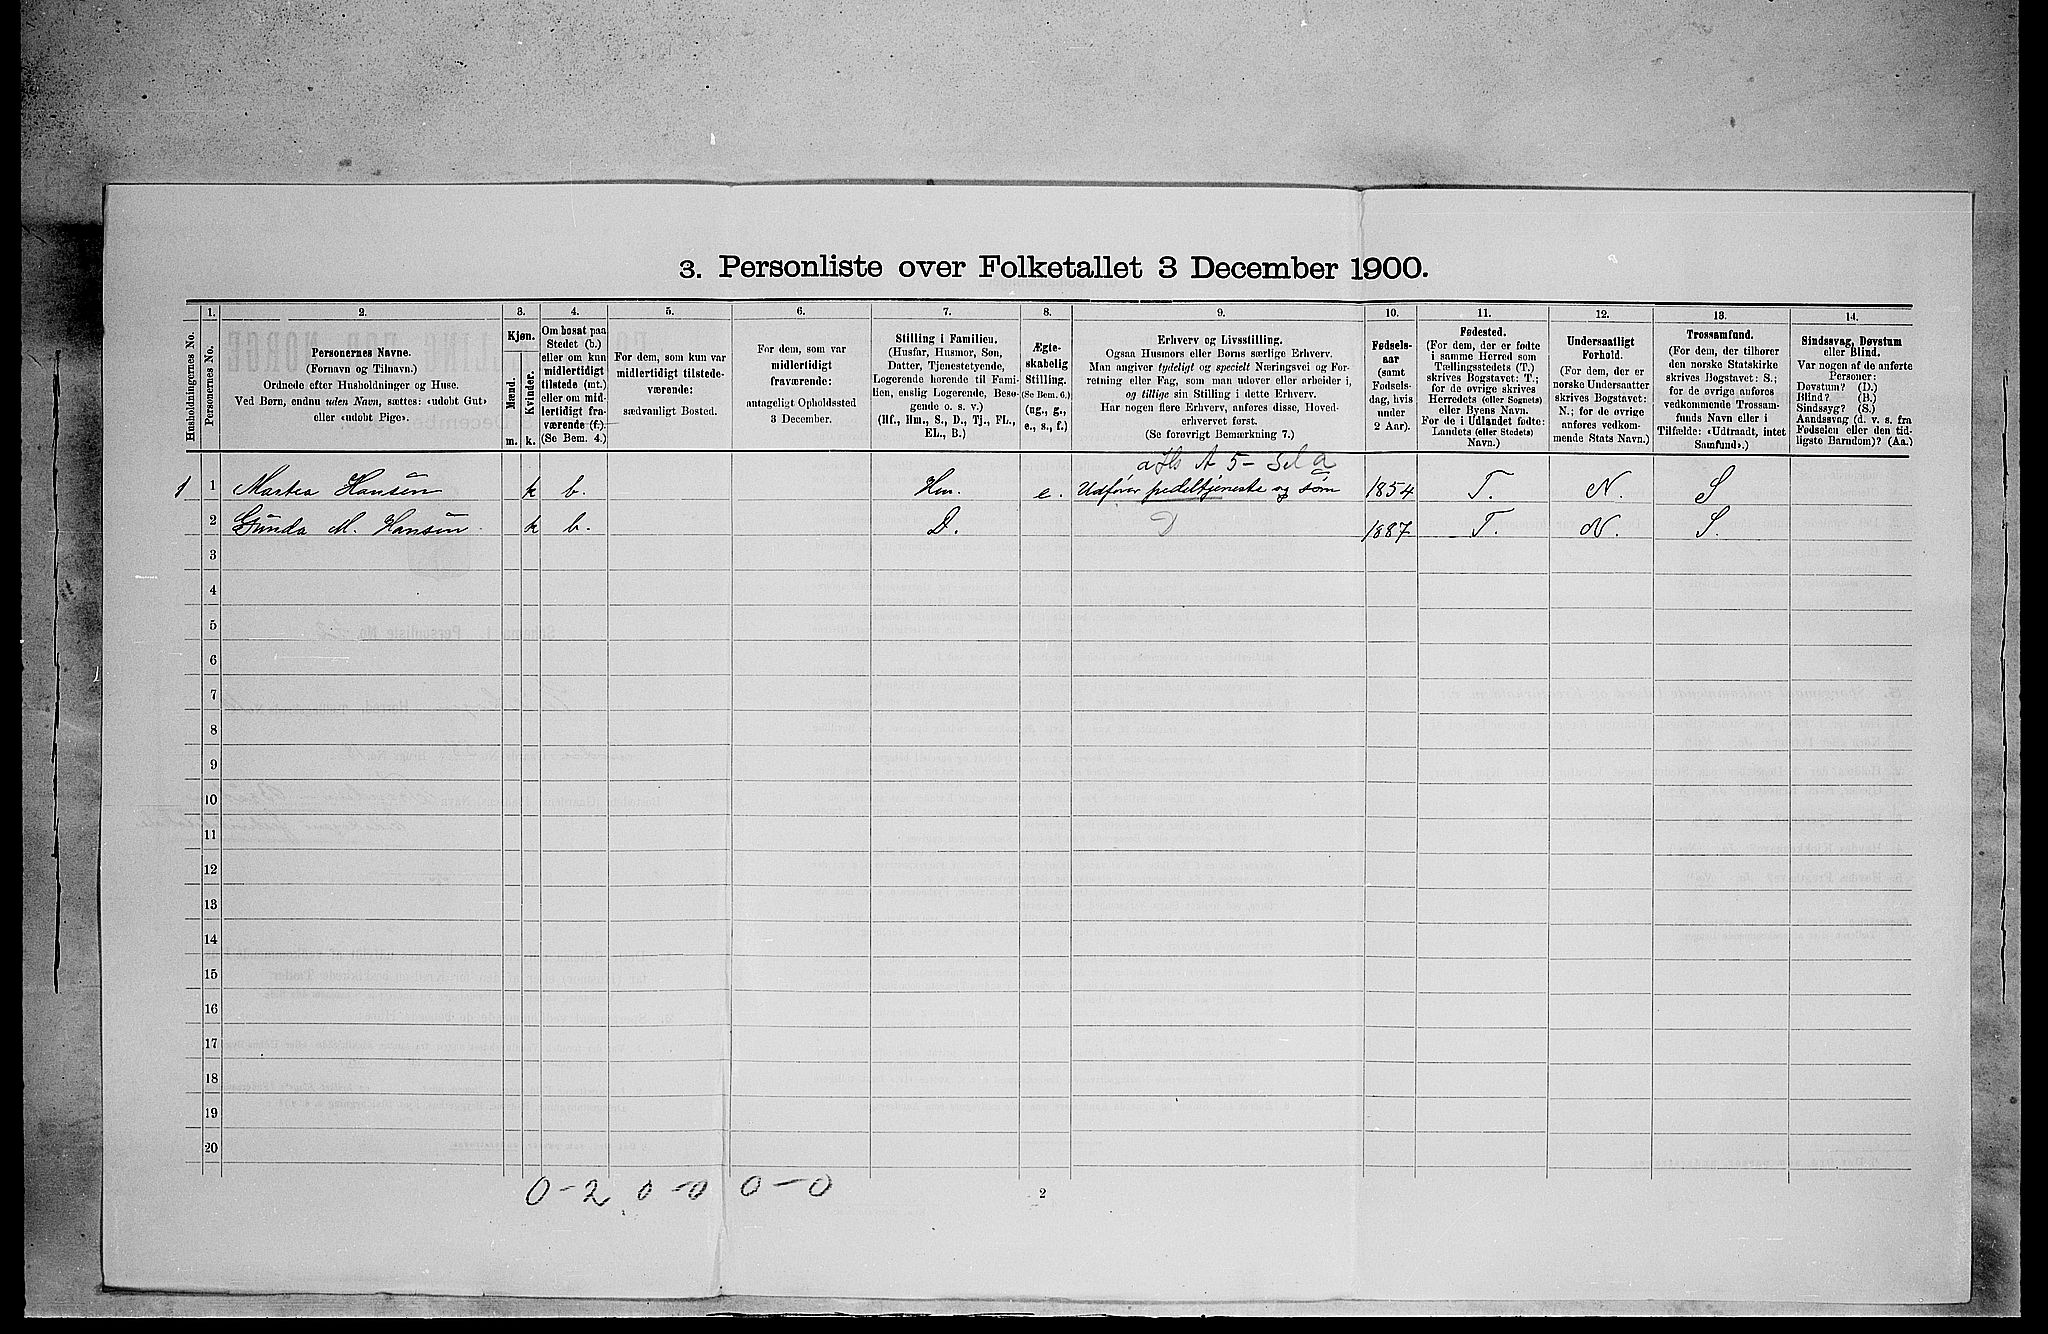 3. Personliste over Folketallet 3 December 1900.
Husholdningernes No.
1.
Personernes No.
2.
Personernes Navne.
(Fornavn og Tilnavn.)
Ordnede efter Husholdninger og Huse.
Ved Børn, endnu uden Navn, sættes: «udøbt Gut»
eller «udøbt Pige».
3.
Kjøn.
Mænd.
Kvinder.
m.
k.
4.
Om bosat paa
Stedet (b.)
eller om kun
midlertidigt
tilstede (mt.)
eller om mid-
lertidigt fra-
værende (f.).
(Se Bem. 4.)
5.
For dem, som kun var
midlertidigt tilstede-
værende:
sædvanligt Bosted.
6.
For dem, som var
midlertidigt
fraværende:
antageligt Opholdssted
3 December.
7.
Stilling i Familien.
(Husfar, Husmor, Søn,
Datter, Tjenestetyende,
Logerende hørende til Fami-
lien, enslig Logerende, Besø-
gende o. s. v.)
(Hf., Hm., S., D., Tj., FL.,
EL., B.)
8.
Ægte-
skabelig
Stilling.
(Se Bem. 6.)
(ug., g.,
e., s., f.)
9.
Erhverv og Livsstilling.
Ogsaa Husmors eller Børns særlige Erhverv.
Man angiver tydeligt og specielt Næringsvei og For-
retning eller Fag, som man udøver eller arbeider i,
og tillige sin Stilling i dette Erhverv.
Har nogen flere Erhverv, anføres disse, Hoved-
erhvervet først.
(Se forøvrigt Bemærkning 7.)
10.
Fødsels-
aar
(samt
Fødsels-
dag, hvis
under
2 Aar).
11.
Fødested.
(For dem, der er fødte
i samme Herred som
Tællingsstedets (T.)
skrives Bogstavet: T.;
for de øvrige skrives
Herredets (eller Sognets)
eller Byens Navn.
For de i Udlandet fødte:
Landets (eller Stedets)
Navn.)
12.
Undersaatligt
Forhold.
(For dem, der er
norske Undersaatter
skrives Bogstavet:
N.; for de øvrige
anføres vedkom-
mende Stats Navn.)
13.
Trossamfund.
(For dem, der tilhører
den norske Statskirke
skrives Bogstavet: S.;
for de øvrige anføres
vedkommende Trossam-
funds Navn eller i
Tilfælde: «Udtraadt, intet
Samfund».)
14.
Sindssvag, Døvstum
eller Blind.
Var nogen af de anførte
Personer:
Døvstum? (D.)
Blind? (B.)
Sindssyg? (S.)
Aandssvag (d. v. s. fra
Fødselen eller den tid-
ligste Barndom)? (Aa.)
A 5 -
1 1 Martea Hansen k b. Hm. e. Udfører pedeltjeneste og søm 1854 T. N. S
2 Gunda M. Hansen k b. D. D 1887 T. N. S.
3
4
5
6
7
8
9
10
11
12
13
14
15
16
17
18
19
20
0-2 0-0 0-0
2